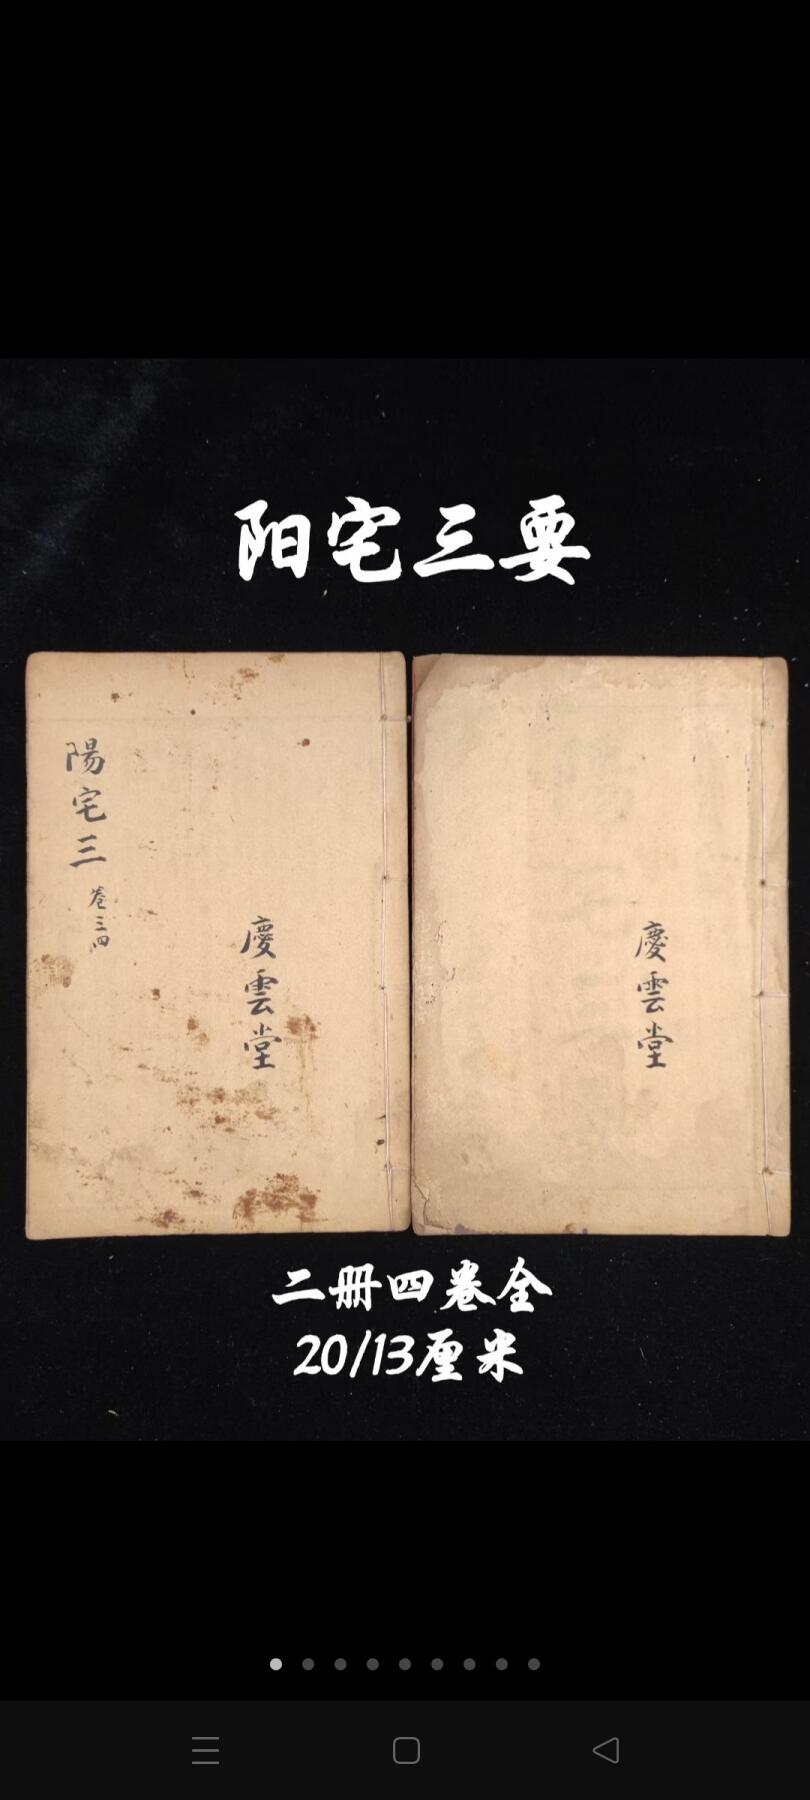 阳宅三要
陽宅三
卷三四
慶雲堂
慶雲堂
二册四卷全
20/13厘米